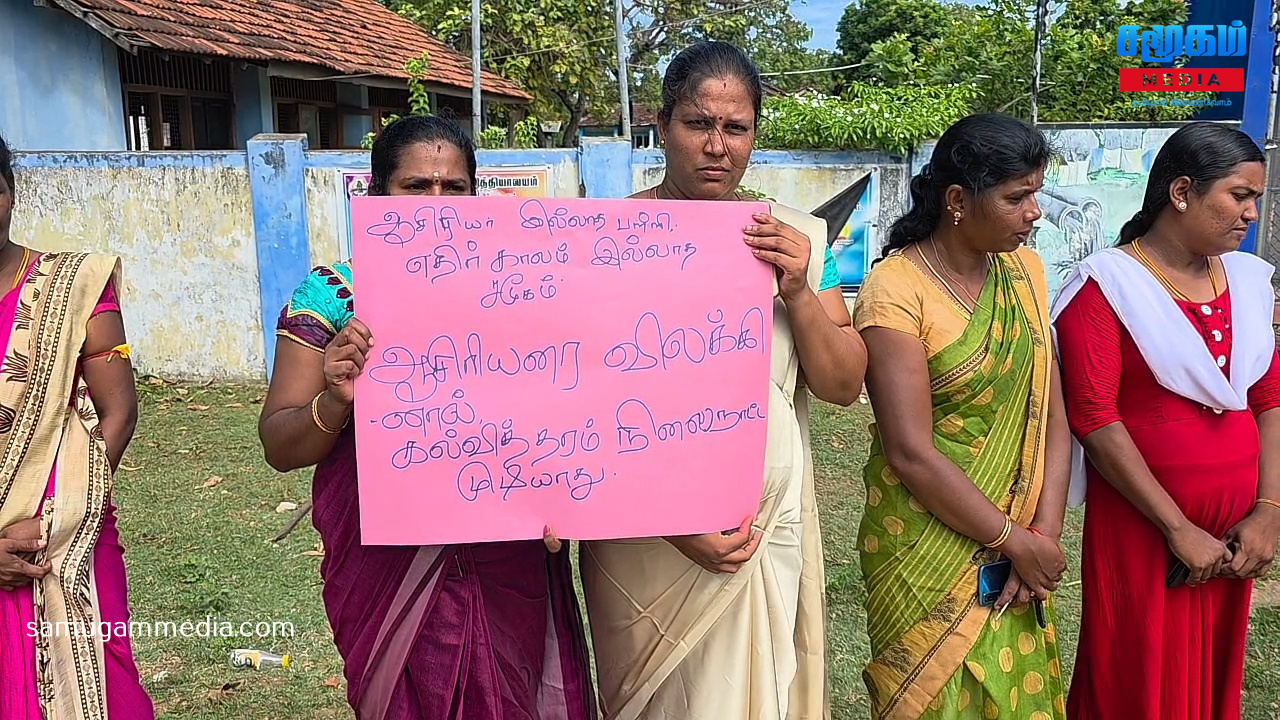 சமூகம்
MEDIA
வித்தியாலயம்
ஆசிரியர் இல்லாத பள்ளி.
எதிர் காலம் இல்லாத
சமூகம்
ஆசிரியரை விலக்கி
-னால்
கல்வித்தரம் நிலைநாட்ட
முடியாது.
samugammedia.com